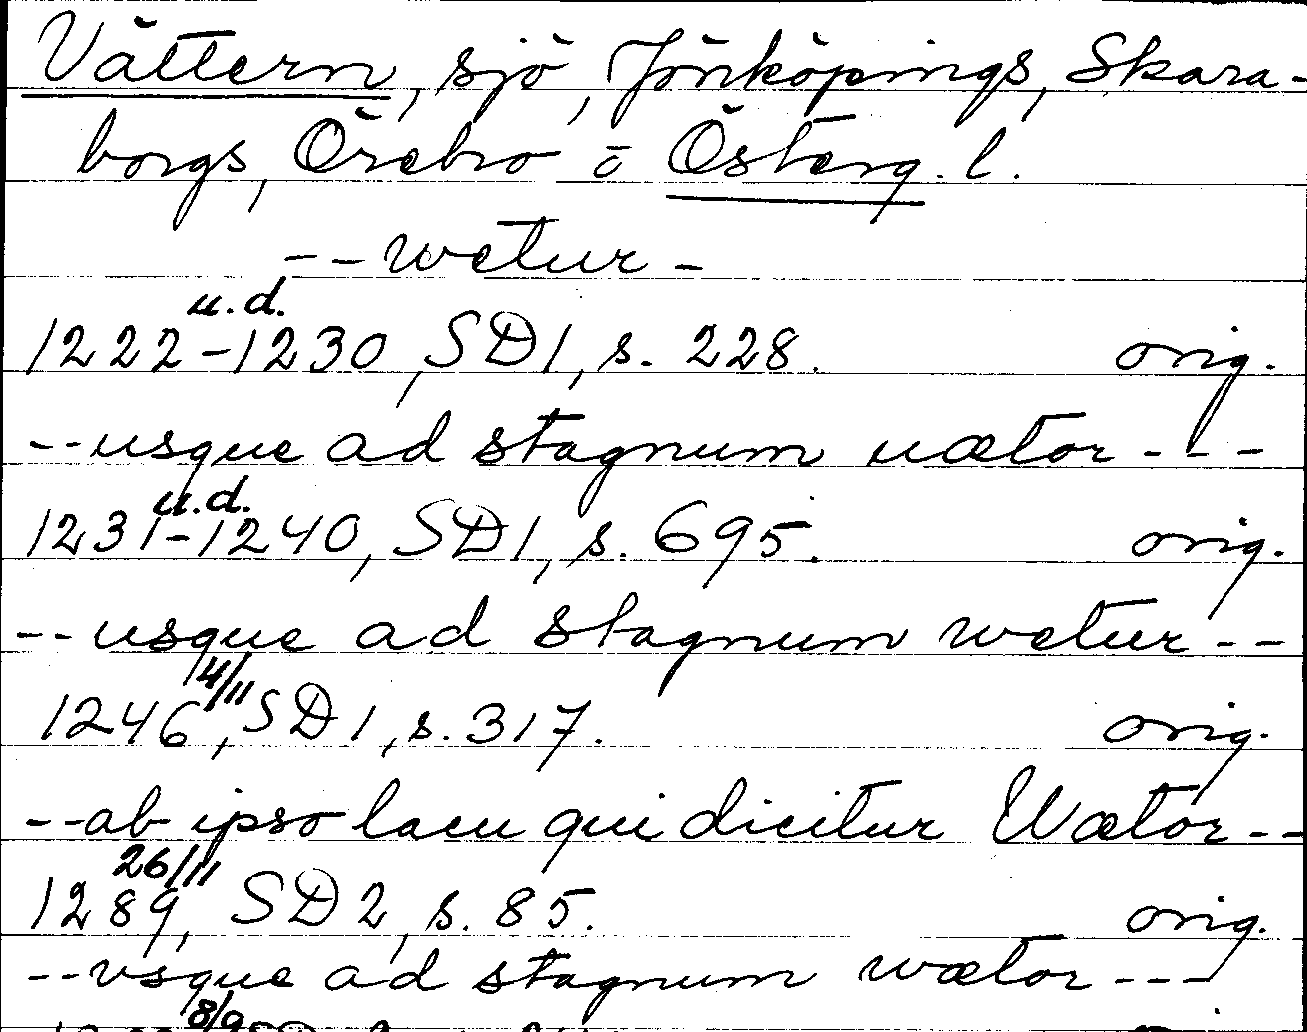 Vättern, sjö, Jönköpings, Skara-
borgs, Örebro o Österg. l.
--wetur-
u.d.
1222-1230, SD1, s. 228. orig.
--usque ad stagnum uætor---
u.d.
1231-1240, SD1, s. 695. orig.
--usque ad stagnum wetur--
14/11
1246, SD1, s. 317. orig.
--ab ipso lacu qui dicitur Wætor--
26/11
1289, SD2, s. 85. orig.
--vsque ad stagnum wætor---
8/9